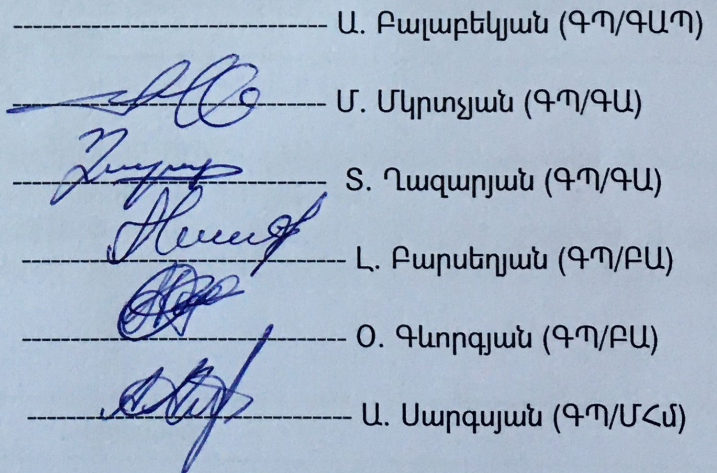 -------------------------- Ա. Բալաբեկյան (ԳՊ/ԳԱՊ)
-------------------------- Մ. Մկրտչյան (ԳՊ/ԳԱ)
-------------------------- Տ. Ղազարյան (ԳՊ/ԳԱ)
-------------------------- Լ. Բարսեղյան (ԳՊ/ԲԱ)
-------------------------- Օ. Գևորգյան (ԳՊ/ԲԱ)
-------------------------- Ա. Սարգսյան (ԳՊ/ՄՀմ)